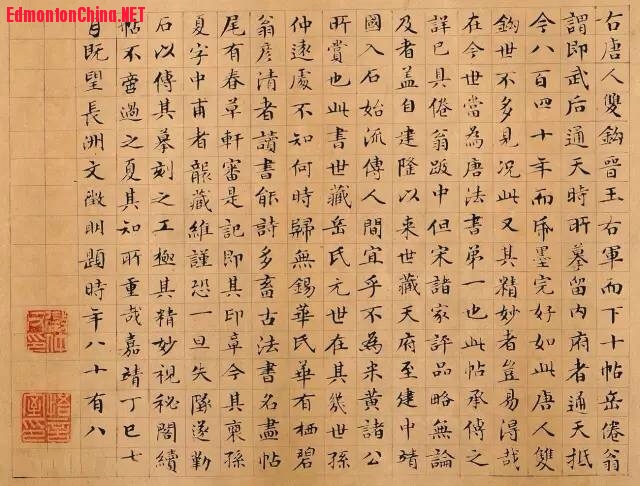 EdmontonChina.NET
右唐人雙鉤晉王右軍而下十帖岳倦翁
謂即武后通天時所摹留內府者通天抵
今八百四十年而帋墨完好如此唐人雙
鉤世不多見況此又其精妙者豈易得哉
在今世當為唐法書第一也此帖承傳之
詳已具倦翁跋中但宋諸家評品略無論
及者蓋自建隆以來世藏天府至建中靖
國入石始流傳人間宜乎不為米黃諸公
所賞也此書世藏岳氏元世在其幾世孫
仲遠處不知何時歸無錫華氏華有栖碧
翁彥清者讀書能詩多畜古法書名畫帖
尾有春草軒審是記即其印章今其裔孫
夏字中甫者襲藏維謹恐一旦失隊遂勒
石以傳其摹刻之工極其精妙視秘閣續
帖不啻過之夏其知所重哉嘉靖丁巳七
月既望長洲文徵明題時年八十有八